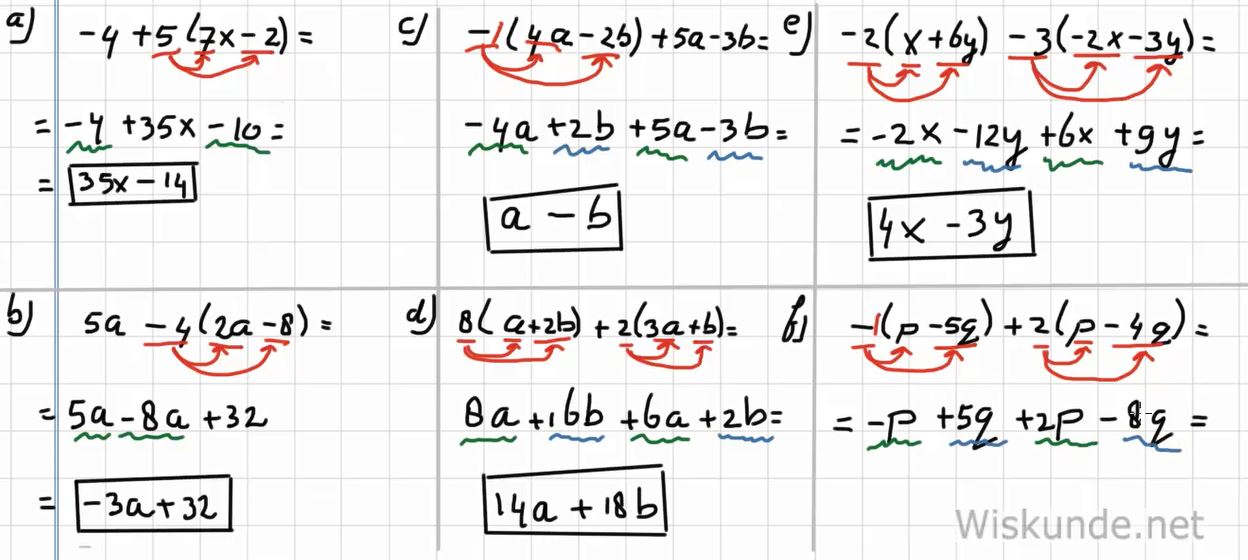 a) -4 +5(7x-2)=
= -4 +35x -10=
= 35x-14
b) 5a -4(2a-8)=
= 5a-8a +32
= -3a+32
c) -1(4a-2b)+5a-3b=
-4a+2b+5a-3b=
a - b
d) 8(a+2b)+2(3a+b)=
8a+16b+6a+2b=
14a+18b
e) -2(x+6y) -3(-2x-3y)=
= -2x -12y +6x +9y=
4x -3y
f) -1(p-5q)+2(p-4q)=
= -p +5q +2p -8q =
Wiskunde.net